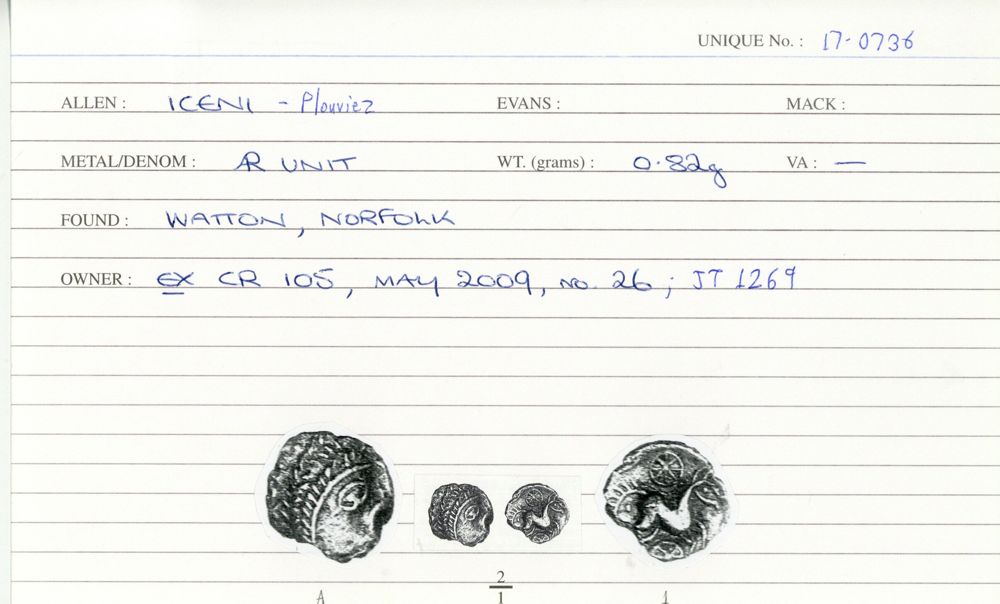 UNIQUE No. : 17-0736
ALLEN : ICENI - Plouviez EVANS : MACK :
METAL/DENOM : AR UNIT WT. (grams) : 0.82g VA : —
FOUND : WATTON, NORFOLK
OWNER : EX CR 105, MAY 2009, NO. 26; JT 1269
A 2/1 1